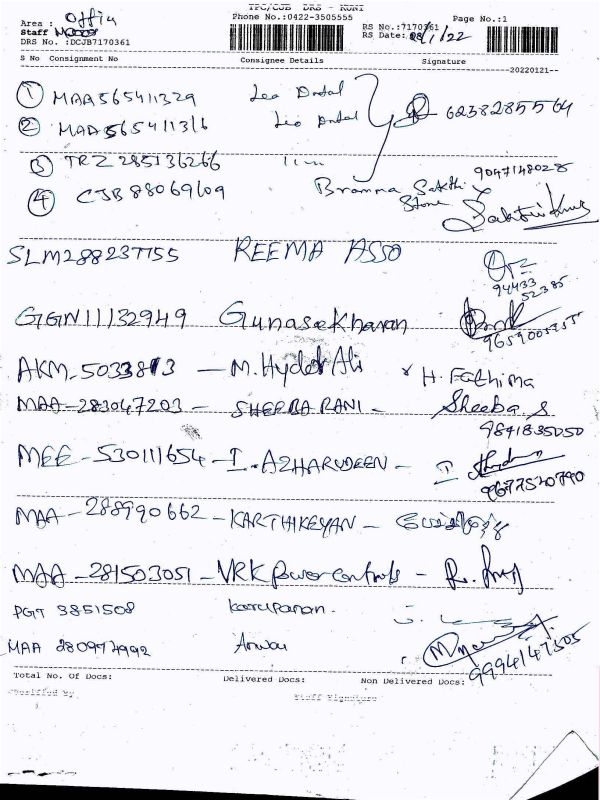 TPC/CJB DRS - KUNI
Phone No.:0422-3505555
Area : Office
Staff
DRS No. :DCJB7170361
RS No.:7170361
RS Date: 28/1/22
Page No.:1
S No Consignment No Consignee Details Signature
20220121--
① MAA565411329 Leo Dental
② MAA565411316 Leo Dental 6238285564
③ TRZ 285136266 9047148028
④ CJB 88069609 Bramma Sakthi Stone x Sakthi Kumar
SLM288237755 REEMA ASSO 94433 52385
GGN11132949 Gunasekharan
AKM-5033813 - M.Hyder Ali x H. Fathima
MAA-283047203 - SHEEBA RANI - Sheeba S
9841835050
MEE-530111654 - I.AZHARUDEEN - I
9677520790
MAA-288990662 - KARTHIKEYAN -
MAA-281503051 - VRK power controls -
PGT 3851508 karupanan.
MAA 280977992 Anwar 9994147505
Total No. Of Docs: Delivered Docs: Non Delivered Docs:
Verified By Staff Signature